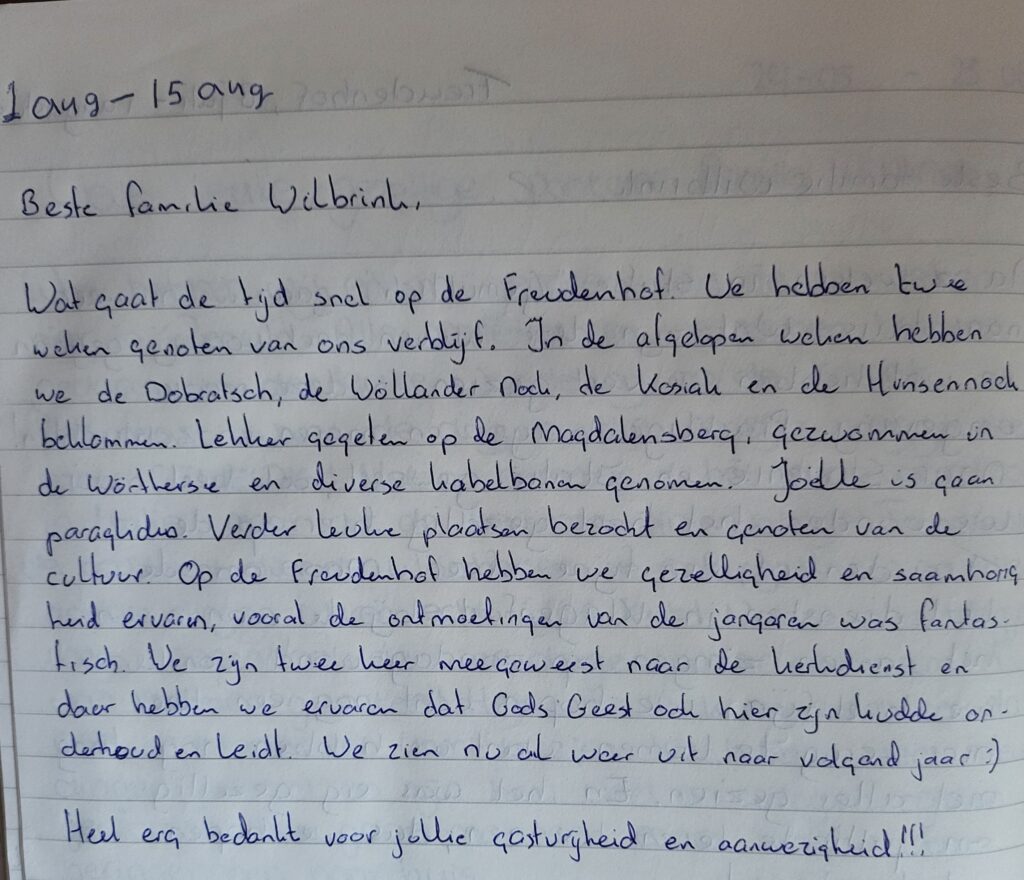 1 aug – 15 aug
Beste familie Wilbrink,
Wat gaat de tijd snel op de Freudenhof. We hebben twee
weken genoten van ons verblijf. In de afgelopen weken hebben
we de Dobratsch, de Wöllander Nock, de Kosiak en de Hunsennock
beklommen. Lekker gegeten op de Magdalensberg, gezwommen in
de Wörthersee en diverse kabelbanen genomen. Joëlle is gaan
paragliden. Verder leuke plaatsen bezocht en genoten van de
cultuur. Op de Freudenhof hebben we gezelligheid en saamhorig
heid ervaren, vooral de ontmoetingen van de jongeren was fantas-
tisch. We zijn twee keer meegeweest naar de kerkdienst en
daar hebben we ervaren dat Gods Geest ook hier zijn kudde on-
derhoud en leidt. We zien nu al weer uit naar volgend jaar :)
Heel erg bedankt voor jullie gastvrijheid en aanwezigheid!!!